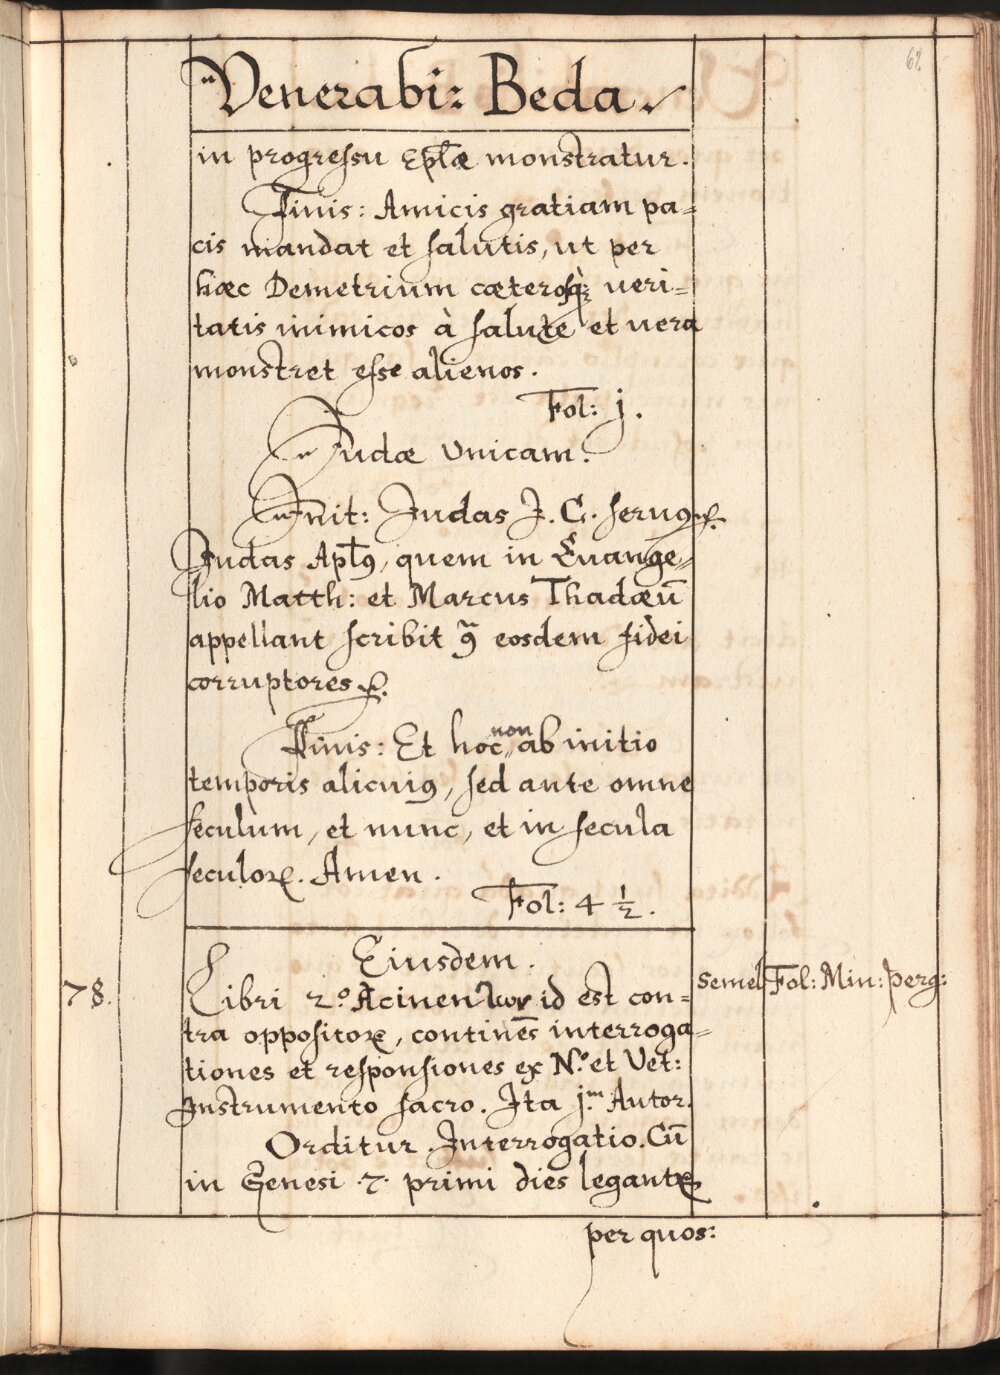 62
Venerabi: Beda.
in progressu Epłæ monstratur.
Finis: Amicis gratiam pa=
cis mandat et salutis, ut per
hæc Demetrium cæterosq; veri=
tatis inimicos à salute et vera
monstret esse alienos.
Fol: j.
Judæ Unicam.
Init: Judas J. C. servꝰ &.
Judas Aptꝰ, quem in Evange=
lio Matth: et Marcus Thadæū
appellant scribit ꝯ̃ eosdem fidei
corruptores &.
Finis: Et hoc non ab initio
temporis alicuiꝰ, sed ante omne
seculum, et nunc, et in secula
seculoꝝ. Amen.
Fol: 4 ½.
Eiusdem.
78. Libri 2.º Acinenλωv id est con= semel Fol: Min: perg:
tra oppositoꝝ, continēs interroga=
tiones et responsiones ex N.º et Vet:
Instrumento sacro. Ita j.m Autor.
Orditur. Interrogatio. Cū
in Genesi .7. primi dies legantꝝ
per quos: